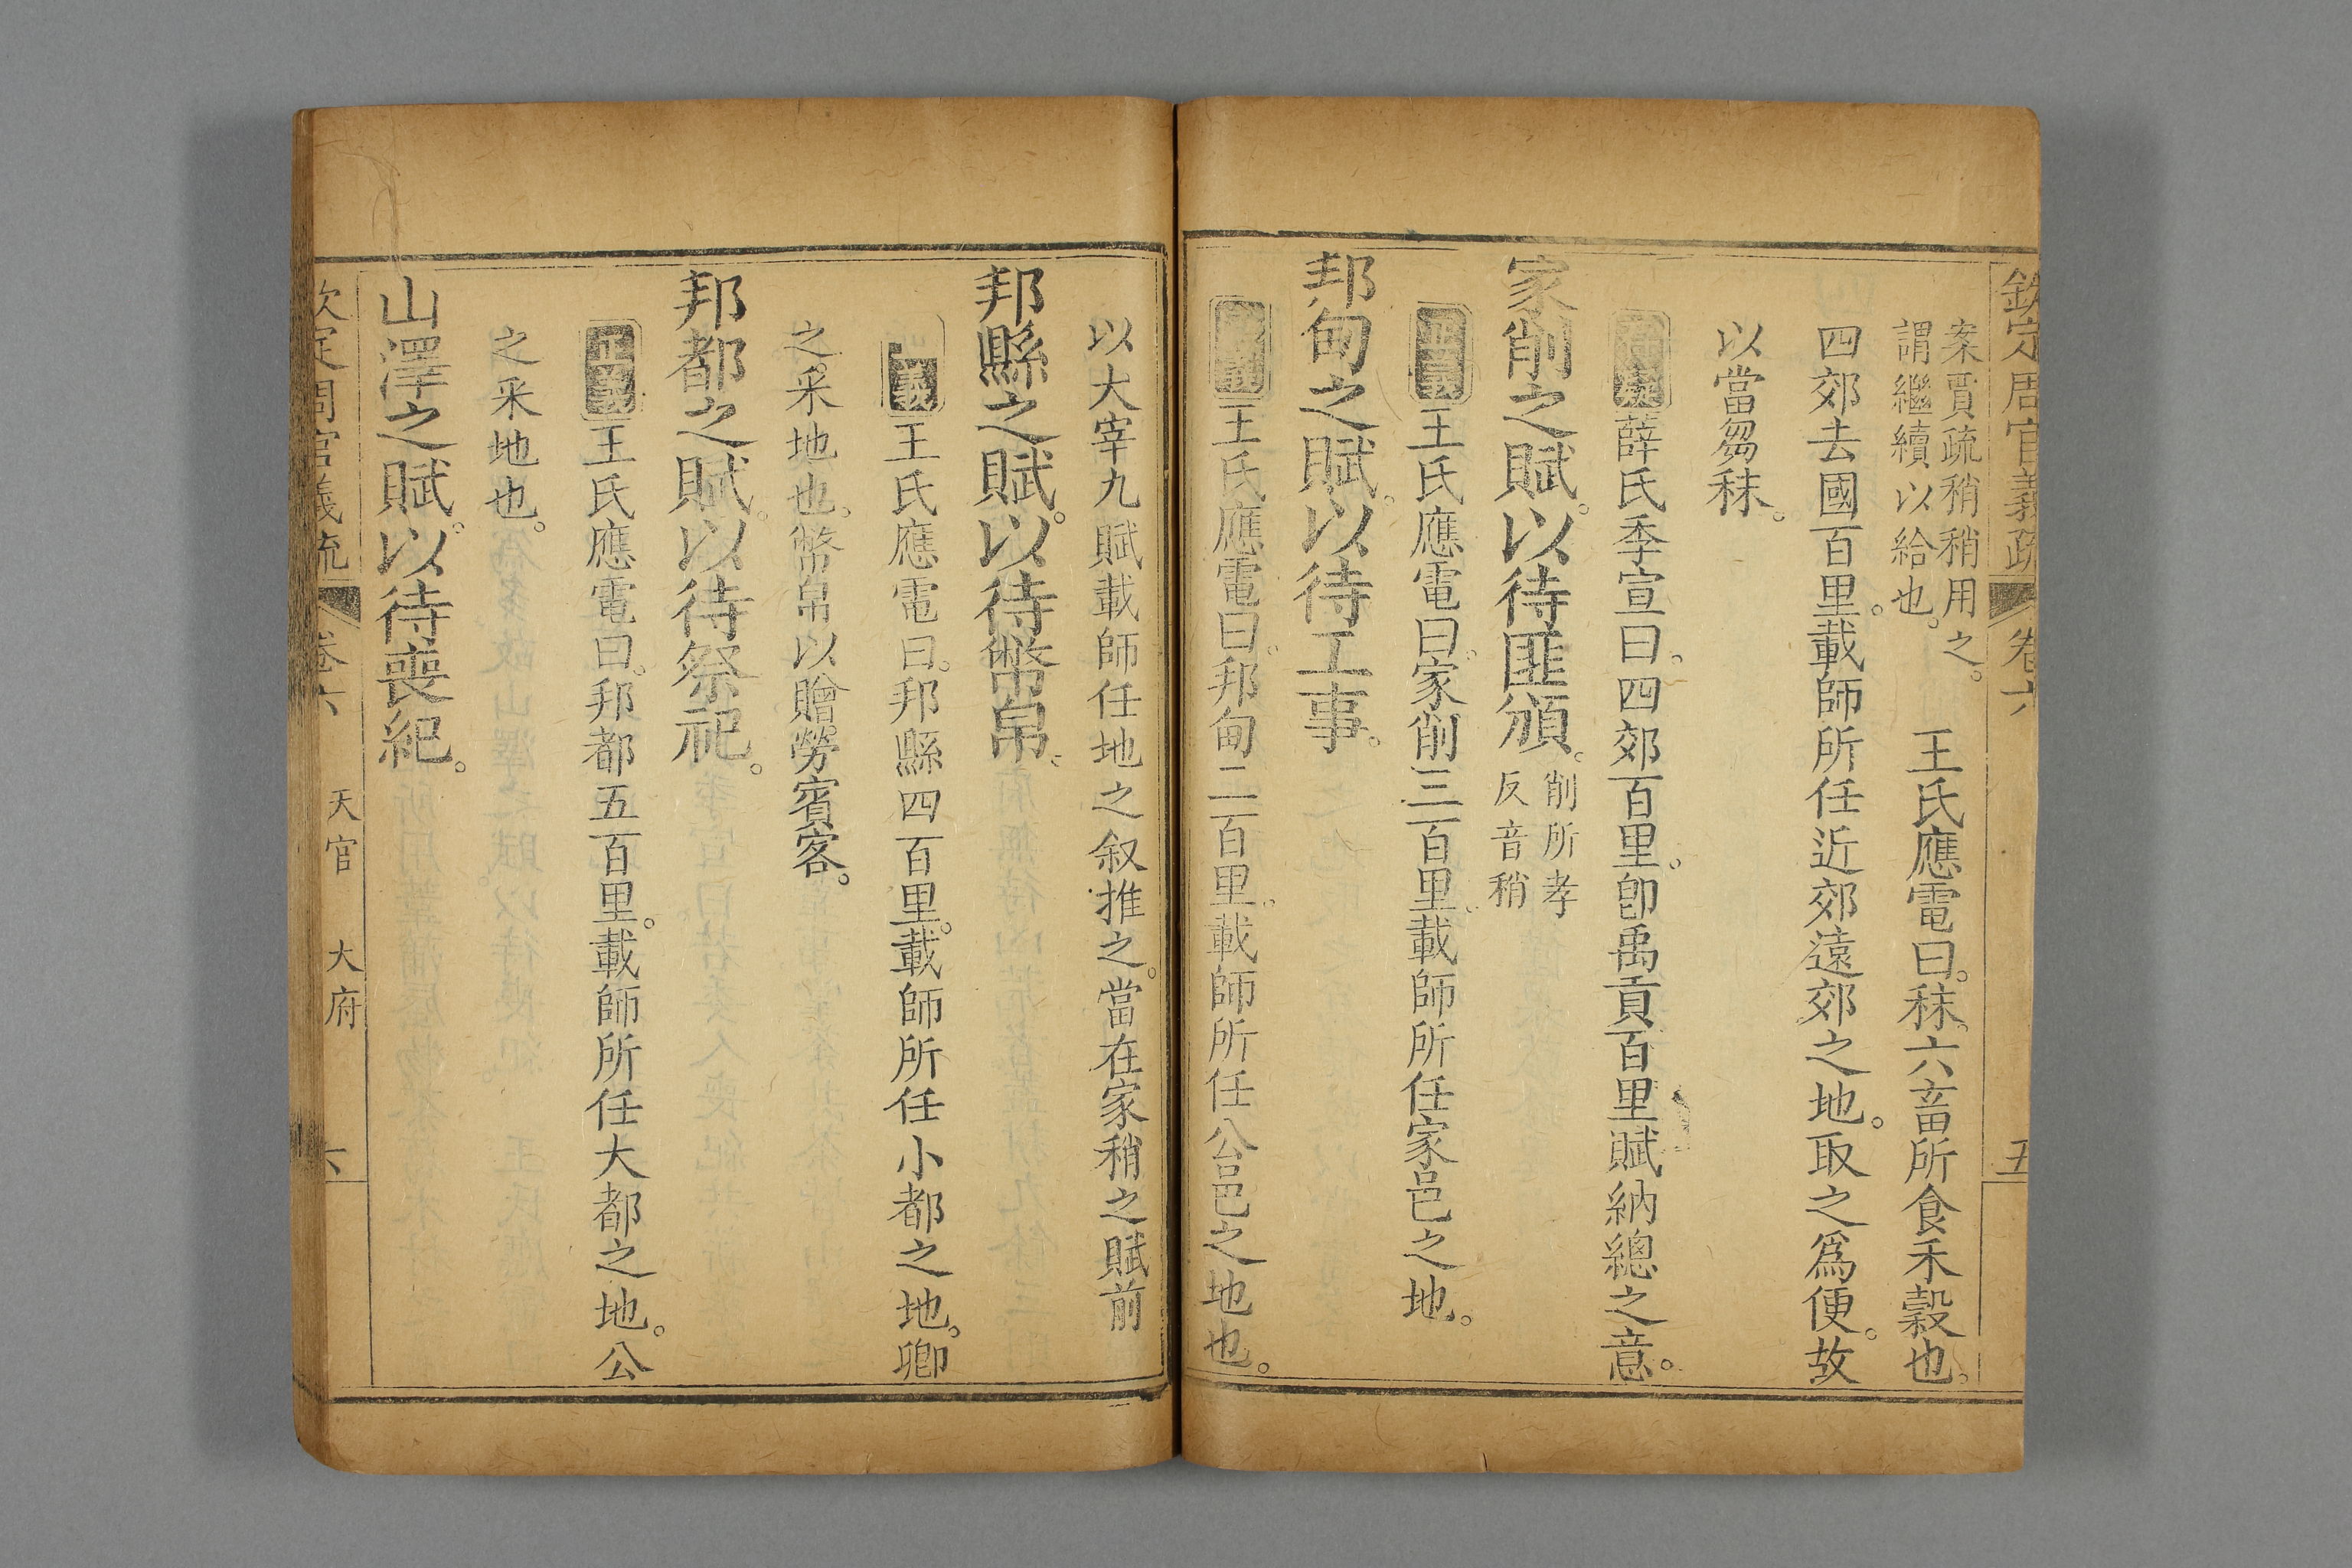 欽定周官義疏 卷六 五
案賈疏稍稍用之。
謂繼續以給也。
王氏應電曰。秣。六畜所食禾穀也。
四郊去國百里。載師所任近郊遠郊之地。取之爲便。故
以當芻秣。
薛氏季宣曰。四郊百里。卽禹貢百里賦納總之意。
家削之賦。以待匪頒。
削所孝
反音稍
正義王氏應電曰。家削三百里。載師所任家邑之地。
邦甸之賦。以待工事。
王氏應電曰。邦甸二百里。載師所任公邑之地也。
以大宰九賦載師任地之叙推之。當在家稍之賦前
邦縣之賦。以待幣帛。
正義王氏應電曰。邦縣四百里。載師所任小都之地。卿
之采地也。幣帛以贈勞賓客。
邦都之賦。以待祭祀。
正義王氏應電曰。邦都五百里。載師所任大都之地。公
之采地也。
山澤之賦。以待喪紀。
欽定周官義疏 卷六 天官 大府 六